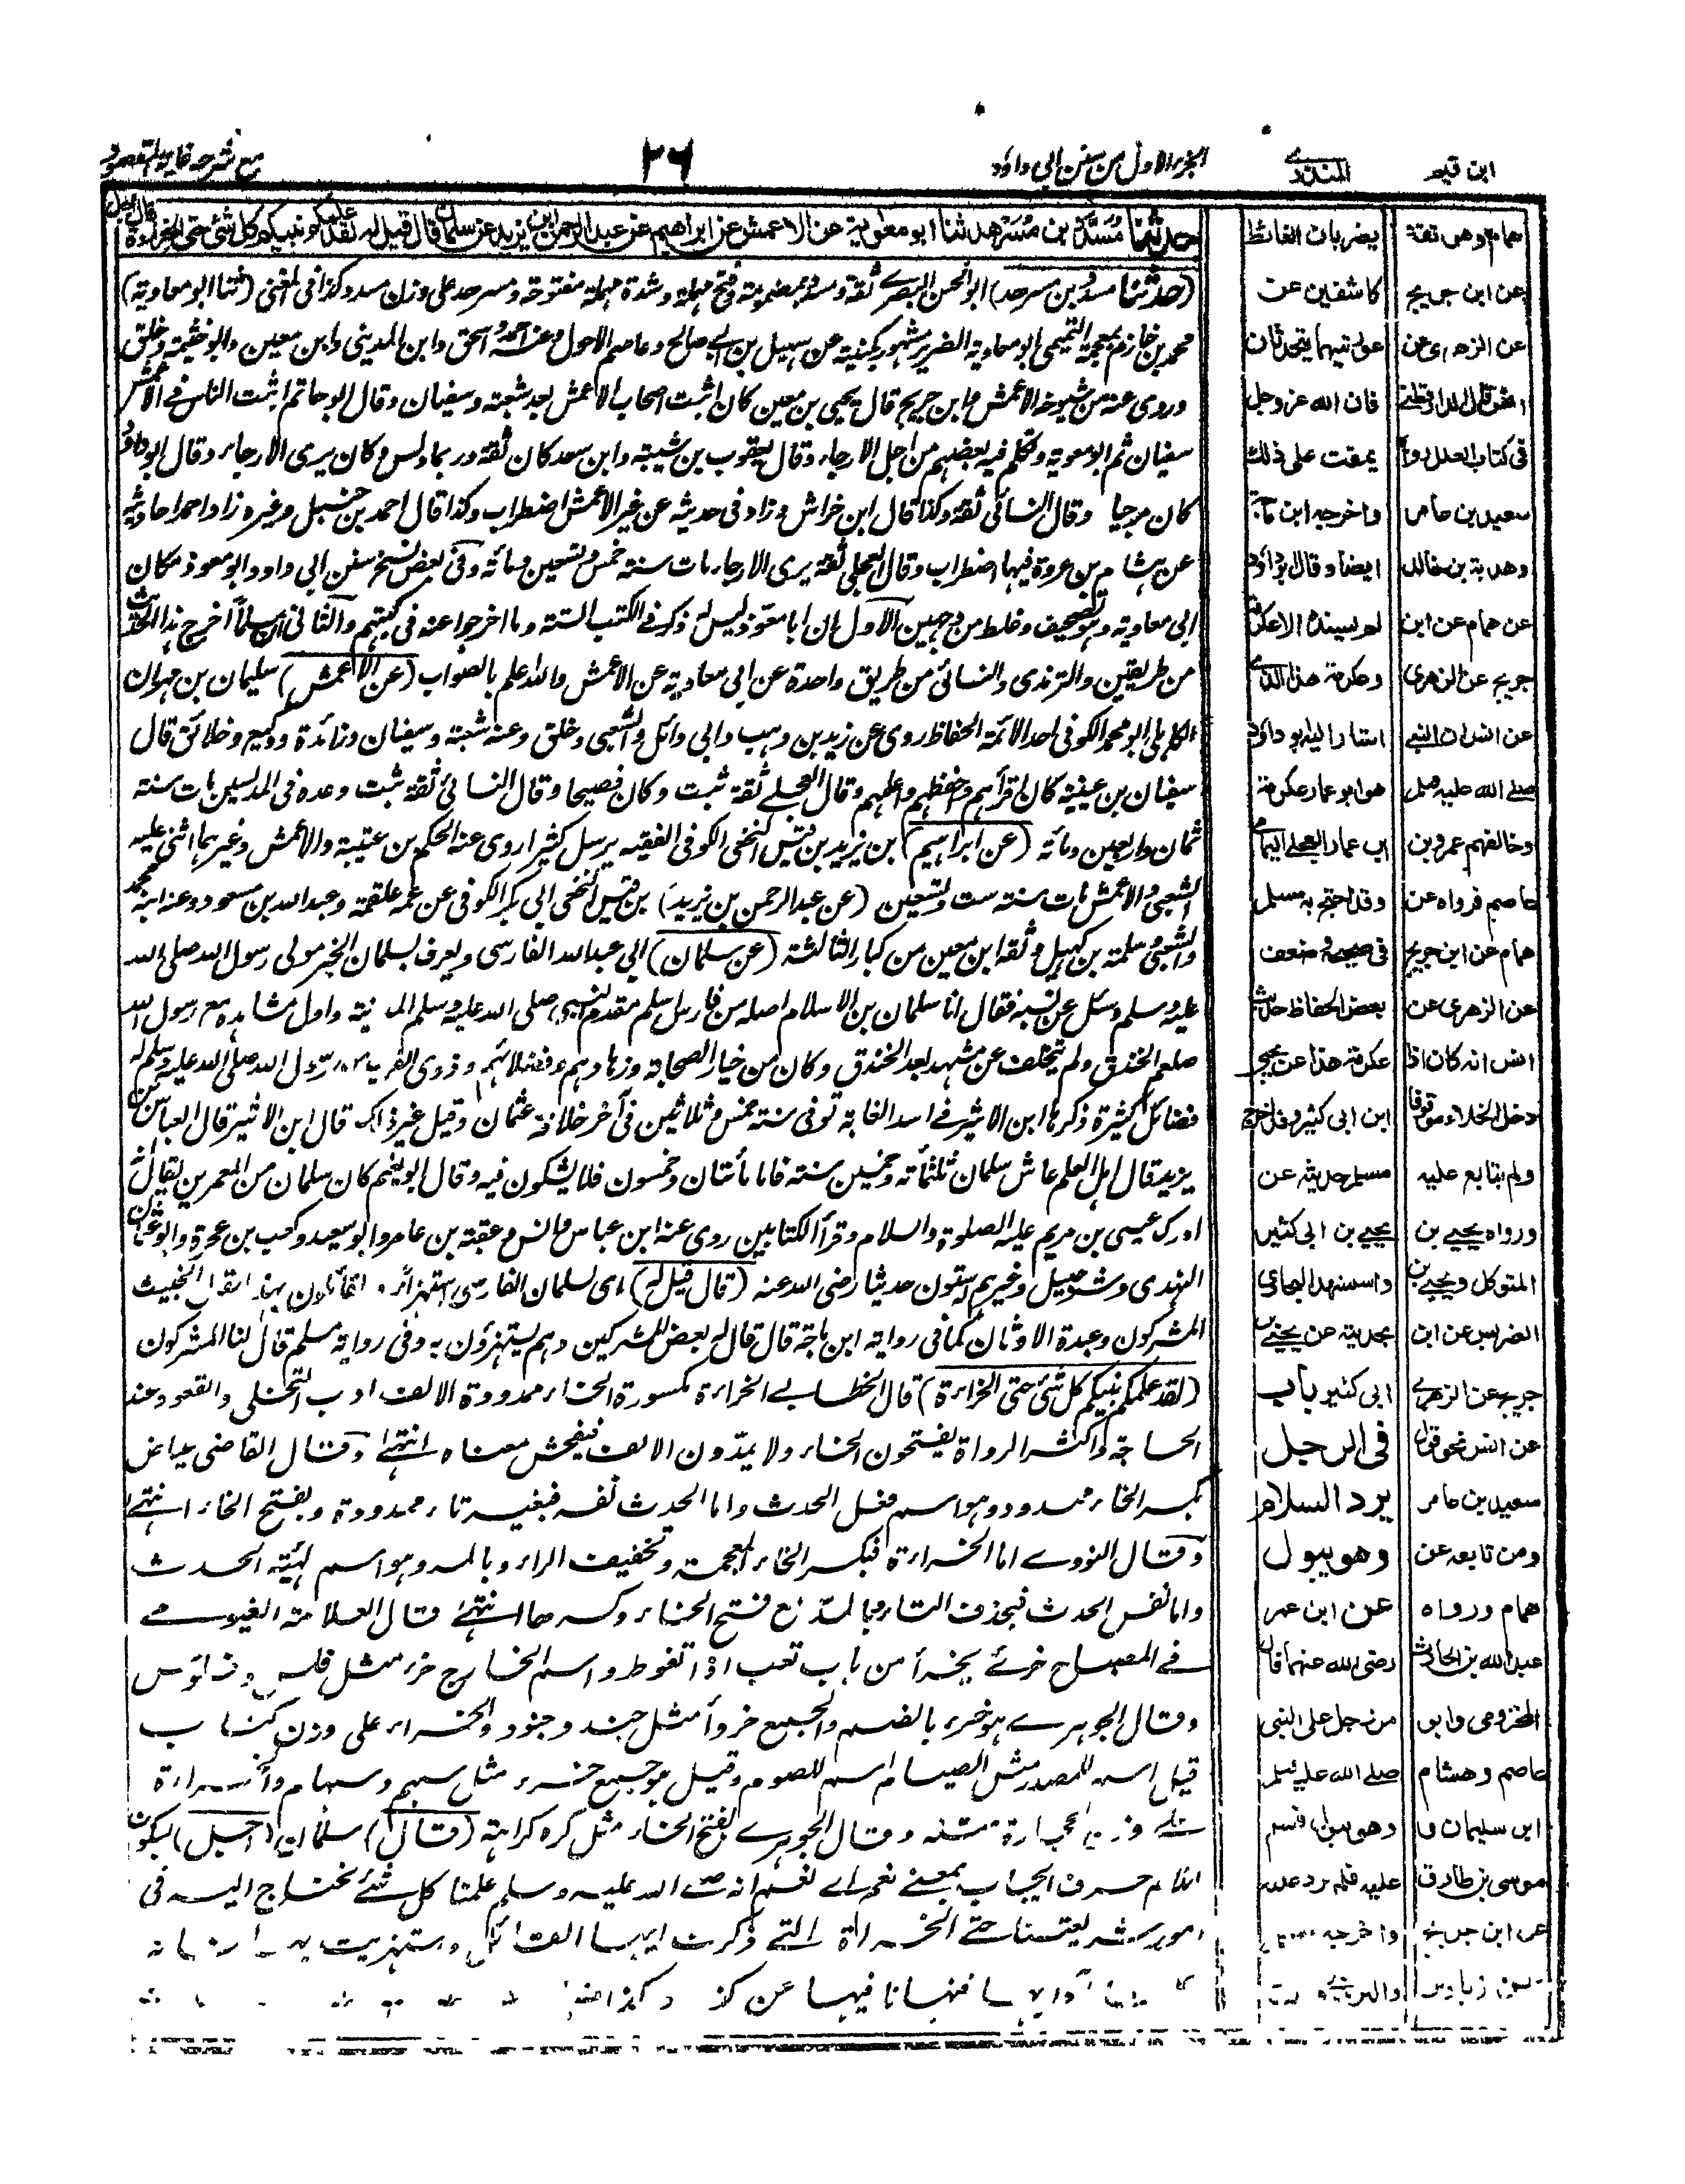 ابن قيم
المنذري
الجزء الاول من سنن ابي داؤد
٢٦
مع شرحه غاية المقصود
حدثنا مسدد بن مسرهد ثنا ابو معاوية عن الاعمش عن ابراهيم عن عبد الرحمن بن يزيد عن سلمان قال قيل له لقد علمكم نبيكم كل شئ حتى الخراءة قال اجل
(حدثنا مسدد بن مسرهد) ابو الحسن البصري ثقة ومسدد بمضمومة وفتح مهملة وشدة مهملة مفتوحة ومسرهد على وزن مسدد وكذا في المغني (ثنا ابو معاوية)
محمد بن خازم بمعجمة التميمي ابو معاوية الضرير مشهور بكنيته عن سهيل بن ابي صالح وعاصم الاحول وعنه احمد واسحق وابن المديني وابن معين وابو خيثمة وخلق
وروى عنه من شيوخه الاعمش وابن جريج قال يحيى بن معين كان اثبت اصحاب الاعمش بعد شعبة وسفيان وقال ابو حاتم اثبت الناس في الاعمش
سفيان ثم ابو معوية وتكلم فيه بعضهم من اجل الارجاء وقال يعقوب بن شيبة وابن سعد كان ثقة وربما دلس وكان يرى الارجاء وقال ابو داؤد
كان مرجيا وقال النسائي ثقة وكذا قال ابن خراش وزاد في حديثه عن غير الاعمش اضطراب وكذا قال احمد بن حنبل وغيره زاد احمد احاديثه
عن هشام بن عروة فيها اضطراب وقال العجلي ثقة يرى الارجاء مات سنة خمس وتسعين ومائة وفي بعض نسخ سنن ابي داود ابو معوذ مكان
ابي معاوية وهو تصحيف وغلط من وجهين الاول ان ابا معوذ ليس له ذكر في الكتب الستة وما اخرجوا عنه في كتبهم والثاني ان مسلما اخرج هذا الحديث
من طريقين والترمذي والنسائي من طريق واحدة عن ابي معاوية عن الاعمش والله اعلم بالصواب (عن الاعمش) سليمان بن مهران
الكاهلي ابو محمد الكوفي احد الائمة الحفاظ روى عن زيد بن وهب وابي وائل والشعبي وخلق وعنه شعبة وسفيان وزائدة ووكيع وخلائق قال
سفيان بن عيينة كان اقرأهم واحفظهم واعلمهم وقال العجلي ثقة ثبت وكان فصيحا وقال النسائي ثقة ثبت وعده في المدلسين مات سنة
ثمان واربعين ومائة (عن ابراهيم) بن يزيد بن قيس النخعي الكوفي الفقيه يرسل كثيرا روى عنه الحكم بن عتيبة والاعمش وغيرهما اثنى عليه
الشعبي والاعمش مات سنة ست وتسعين (عن عبد الرحمن بن يزيد) بن قيس النخعي ابي بكر الكوفي عن عمه علقمة وعبد الله بن مسعود وعنه ابنه محمد
والشعبي وسلمة بن كهيل وثقه ابن معين من كبار الثالثة (عن سلمان) ابي عبد الله الفارسي ويعرف بسلمان الخير مولى رسول الله صلى الله
عليه وسلم وسئل عن نسبه فقال انا سلمان بن الاسلام اصله من فارس اسلم مقدم النبي صلى الله عليه وسلم المدينة واول مشاهده مع رسول الله
صلعم الخندق ولم يتخلف عن مشهد بعد الخندق وكان من خيار الصحابة وزهادهم وفضلائهم وذوي القرب من رسول الله صلى الله عليه وسلم له
فضائل كثيرة ذكرها ابن الاثير في اسد الغابة توفي سنة خمس وثلاثين في آخر خلافة عثمان وقيل غير ذلك قال ابن الاثير قال العباس بن
يزيد قال اهل العلم عاش سلمان ثلثمائة وخمسين سنة فاما مأتان وخمسون فلا يشكون فيه وقال ابو نعيم كان سلمان من المعمرين يقال انه
ادرك عيسى بن مريم عليه الصلوة والسلام وقرأ الكتابين روى عنه ابن عباس وانس وعقبة بن عامر وابو سعيد وكعب بن عجرة وابو عثمان
النهدي وشرحبيل وغيرهم له ستون حديثا رضي الله عنه (قال قيل له) اي لسلمان الفارسي استهزاء القائلون بهذا القول الخبيث
المشركون وعبدة الاوثان كما في رواية ابن ماجة قال قال له بعض المشركين وهم يستهزؤن به وفي رواية مسلم قال لنا المشركون
(لقد علمكم نبيكم كل شئ حتى الخراءة) قال الخطابي الخراءة مكسورة الخاء ممدودة الالف ادب التخلي والقعود عند
الحاجة واكثر الرواة يفتحون الخاء ولا يمدون الالف فيفحش معناه انتهى وقال القاضي عياض
بكسر الخاء ممدود وهو اسم فعل الحدث واما الحدث نفسه فبغير تاء ممدودة وبفتح الخاء انتهى
وقال النووي اما الخراءة فبكسر الخاء المعجمة وتخفيف الراء وبالمد وهو اسم لهيئة الحدث
واما نفس الحدث فبحذف التاء وبالمد مع فتح الخاء وكسرها انتهى قال العلامة الفيومي
في المصباح خرئ يخرأ من باب تعب اذا تغوط واسم الخارج خرء مثل فلس وفلوس
وقال الجوهري هو خرء بالضم والجمع خروأ مثل جند وجنود والخراء على وزن كتاب
قيل اسم للمصدر مثل الصيام اسم للصوم وقيل هو جمع خرء مثل سهم وسهام والخراءة
على وزن حجارة مثله وقال الجوهري بفتح الخاء مثل كره كراهة (قال) سلمان (اجل) بسكون
اللام حرف ايجاب بمعنى نعم اي نعم انه صلى الله عليه وسلم علمنا كل شئ نحتاج اليه في
امور شريعتنا حتى الخراءة التي ذكرت ايها القائل واستهزيت
فنهانا فيها عن كذا وكذا
يضربان الغائط
كاشفين عن
عورتيهما يتحدثان
فان الله عز وجل
يمقت على ذلك
واخرجه ابن ماجة
ايضا وقال ابو داؤد
لم يسنده الا عكرمة
وعكرمة هذا الذي
اشار اليه ابو داؤد
هو ابو عمار عكرمة
ابن عمار العجلي اليمامي
وقد احتج به مسلم
في صحيحه وضعف
بعض الحفاظ حديث
عكرمة هذا عن يحيى
ابن ابي كثير وقد اخرج
مسلم حديثه عن
يحيى بن ابي كثير
واستشهد البخاري
بحديثه عن يحيى بن
ابي كثير باب
في الرجل
يرد السلام
وهو يبول
عن ابن عمر
رضي الله عنهما قال
مر رجل على النبي
صلى الله عليه وسلم
وهو يبول فسلم
عليه فلم يرد عليه
واخرجه
همام وهو ثقة
عن ابن جريج
عن الزهري عن
انس قال الدارقطني
في كتاب العلل رواه
سعيد بن عامر
وهدبة بن خالد
عن همام عن ابن
جريج عن الزهري
عن انس ان النبي
صلى الله عليه وسلم
وخالفهم عمرو بن
عاصم فرواه عن
همام عن ابن جريج
عن الزهري عن
انس انه كان اذا
دخل الخلاء موقوفا
ولم يتابع عليه
ورواه يحيى بن
المتوكل ويحيى بن
الضريس عن ابن
جريج عن الزهري
عن انس نحو قول
سعيد بن عامر
ومن تابعه عن
همام ورواه
عبد الله بن الحارث
المخزومي وابو
عاصم وهشام
ابن سليمان و
موسى بن طارق
عن ابن جريج
عن زياد بن